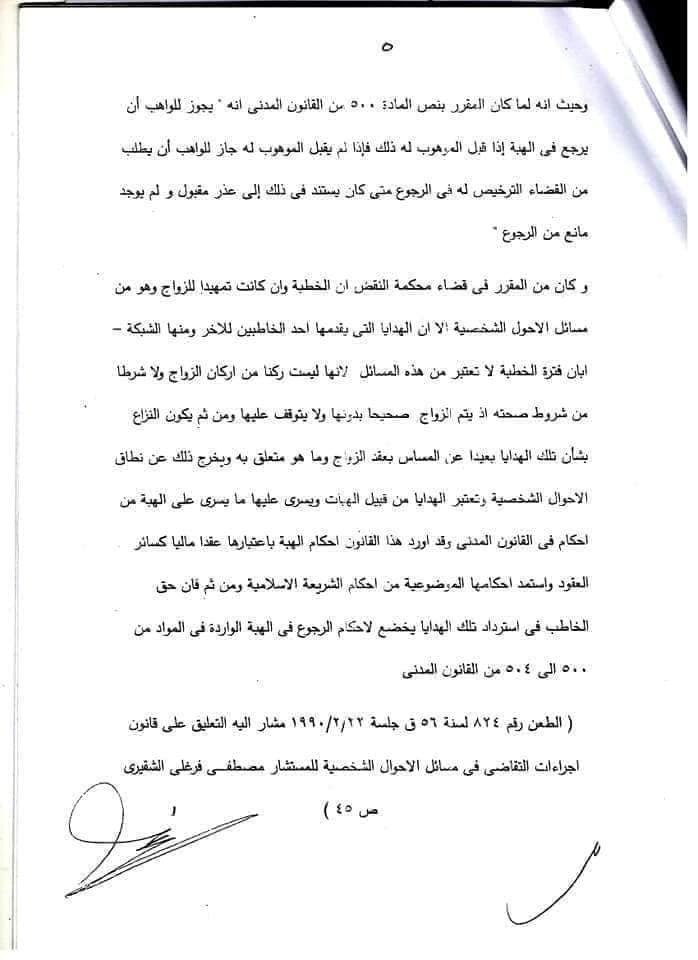 ٥
وحيث انه لما كان المقرر بنص المادة ٥٠٠ من القانون المدنى انه " يجوز للواهب أن
يرجع فى الهبة إذا قبل الموهوب له ذلك فإذا لم يقبل الموهوب له جاز للواهب أن يطلب
من القضاء الترخيص له فى الرجوع متى كان يستند فى ذلك إلى عذر مقبول و لم يوجد
مانع من الرجوع "
و كان من المقرر فى قضاء محكمة النقض ان الخطبة وان كانت تمهيدا للزواج وهو من
مسائل الاحول الشخصية الا ان الهدايا التى يقدمها احد الخاطبين للأخر ومنها الشبكة –
ابان فترة الخطبة لا تعتبر من هذه المسائل لانها ليست ركنا من اركان الزواج ولا شرطا
من شروط صحته اذ يتم الزواج صحيحا بدونها ولا يتوقف عليها ومن ثم يكون النزاع
بشأن تلك الهدايا بعيدا عن المساس بعقد الزواج وما هو متعلق به ويخرج ذلك عن نطاق
الاحوال الشخصية وتعتبر الهدايا من قبيل الهبات ويسرى عليها ما يسرى على الهبة من
احكام فى القانون المدنى وقد اورد هذا القانون احكام الهبة باعتبارها عقدا ماليا كسائر
العقود واستمد احكامها الموضوعية من احكام الشريعة الاسلامية ومن ثم فان حق
الخاطب فى استرداد تلك الهدايا يخضع لاحكام الرجوع فى الهبة الواردة فى المواد من
٥٠٠ الى ٥٠٤ من القانون المدنى
( الطعن رقم ٨٢٤ لسنة ٥٦ ق جلسة ١٩٩٠/٢/٢٢ مشار اليه التعليق على قانون
اجراءات التقاضى فى مسائل الاحوال الشخصية للمستشار مصطفى فرغلى الشقيرى
ص ٤٥ )